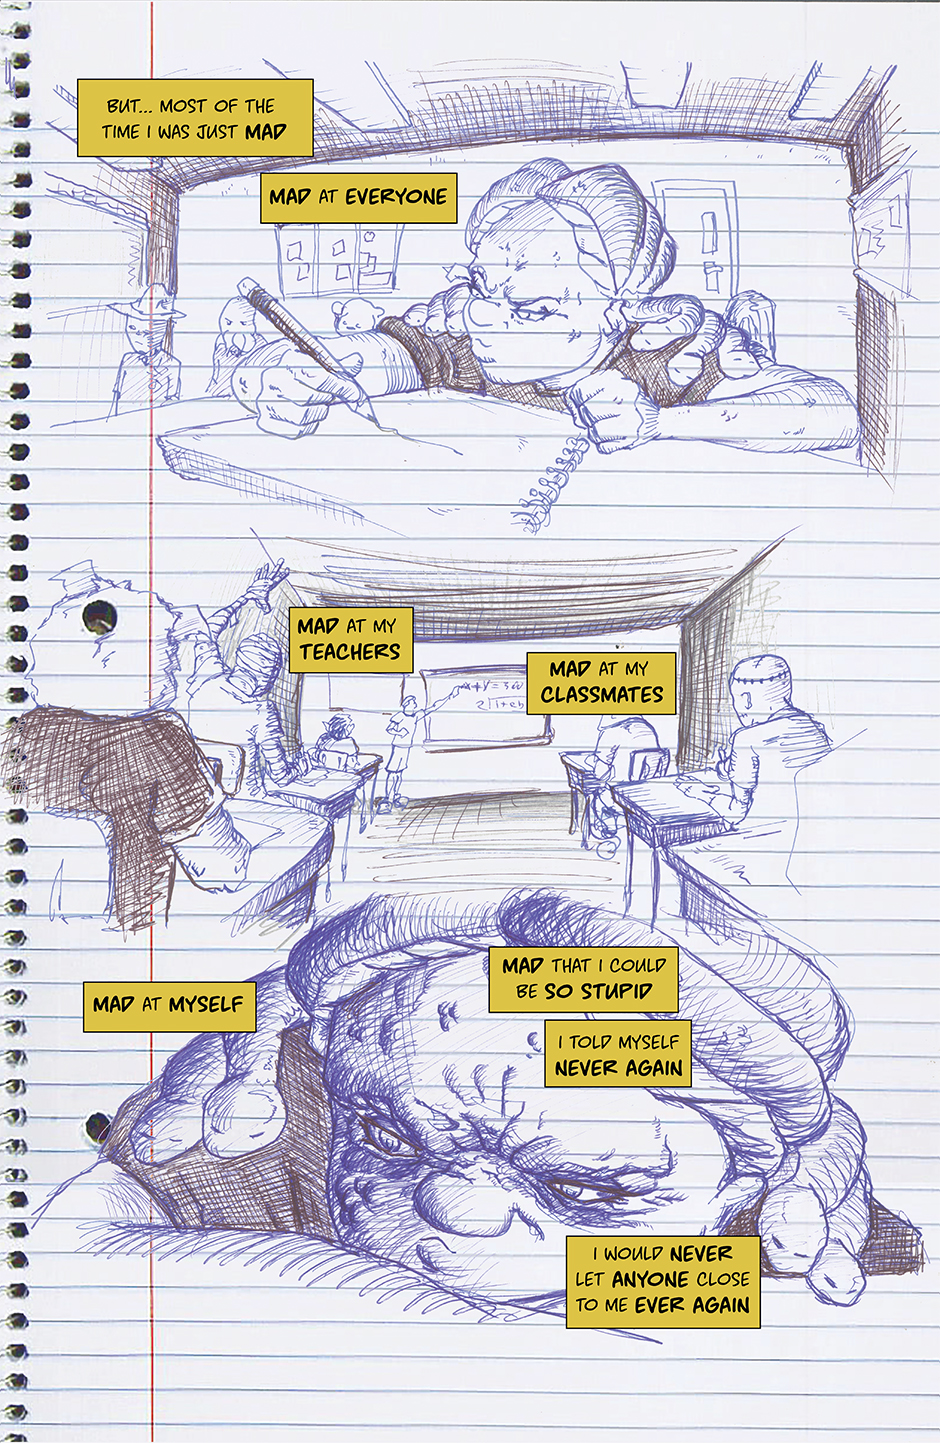 BUT... MOST OF THE
TIME I WAS JUST MAD
MAD AT EVERYONE
MAD AT MY
TEACHERS
MAD AT MY
CLASSMATES
MAD AT MYSELF
MAD THAT I COULD
BE SO STUPID
I TOLD MYSELF
NEVER AGAIN
I WOULD NEVER
LET ANYONE CLOSE
TO ME EVER AGAIN